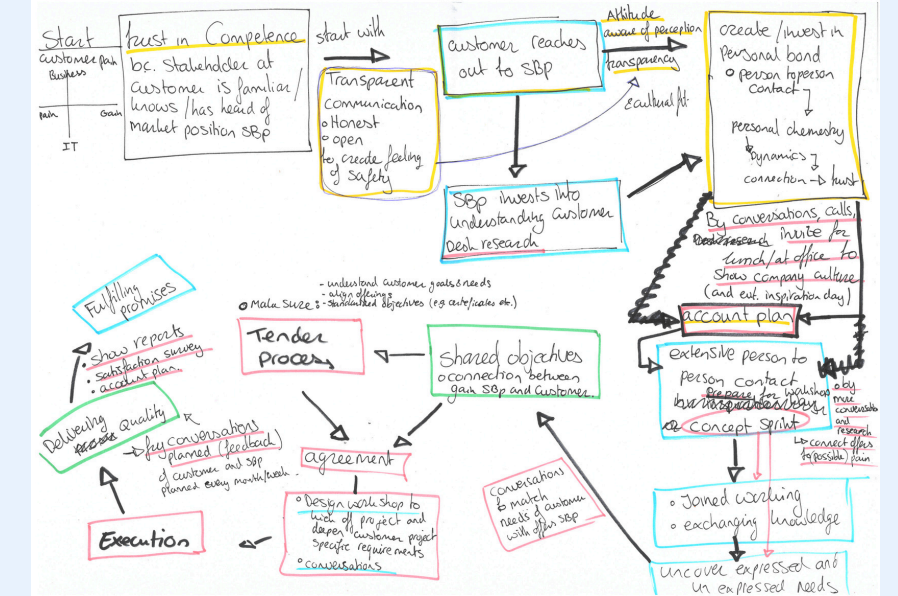 Start
customer pain
Business
pain
Gain
IT
trust in Competence
bc. Stakeholder at
customer is familiar/
knows/has heard of
market position SBp
start with
Transparent
communication
Honest
open
to create feeling
of safety
customer reaches
out to SBp
Attitude
aware of perception
transparency
& cultural fit.
create/invest in
personal bond
person to person
contact
personal chemistry
Dynamics
connection → trust
SBp invests into
understanding customer
Desk research
By conversations, calls,
invite for
lunch/at office to
show company culture
(and evt. inspiration day)
account plan
extensive person to
person contact
prepare for workshop
or concept sprint
by
more
conversations
and
research
connect offers
to possible/pain
Joined working
exchanging knowledge
uncover expressed and
un expressed needs
conversations
to match
needs of customer
with offer SBp
Shared objectives
connection between
gain SBp and Customer.
- understand customer goals & needs
- align offerings
Make sure: - standardized objectives (e.g. certificates etc.)
Tender
Process
agreement
Design workshop to
kick of project and
deepen customer project
specific requirements
conversations
Execution
Delivering Quality
→ key conversations
planned (feedback)
of customer and SBp
planned every month/week.
show reports
satisfaction survey
account plan
Fulfilling
promises